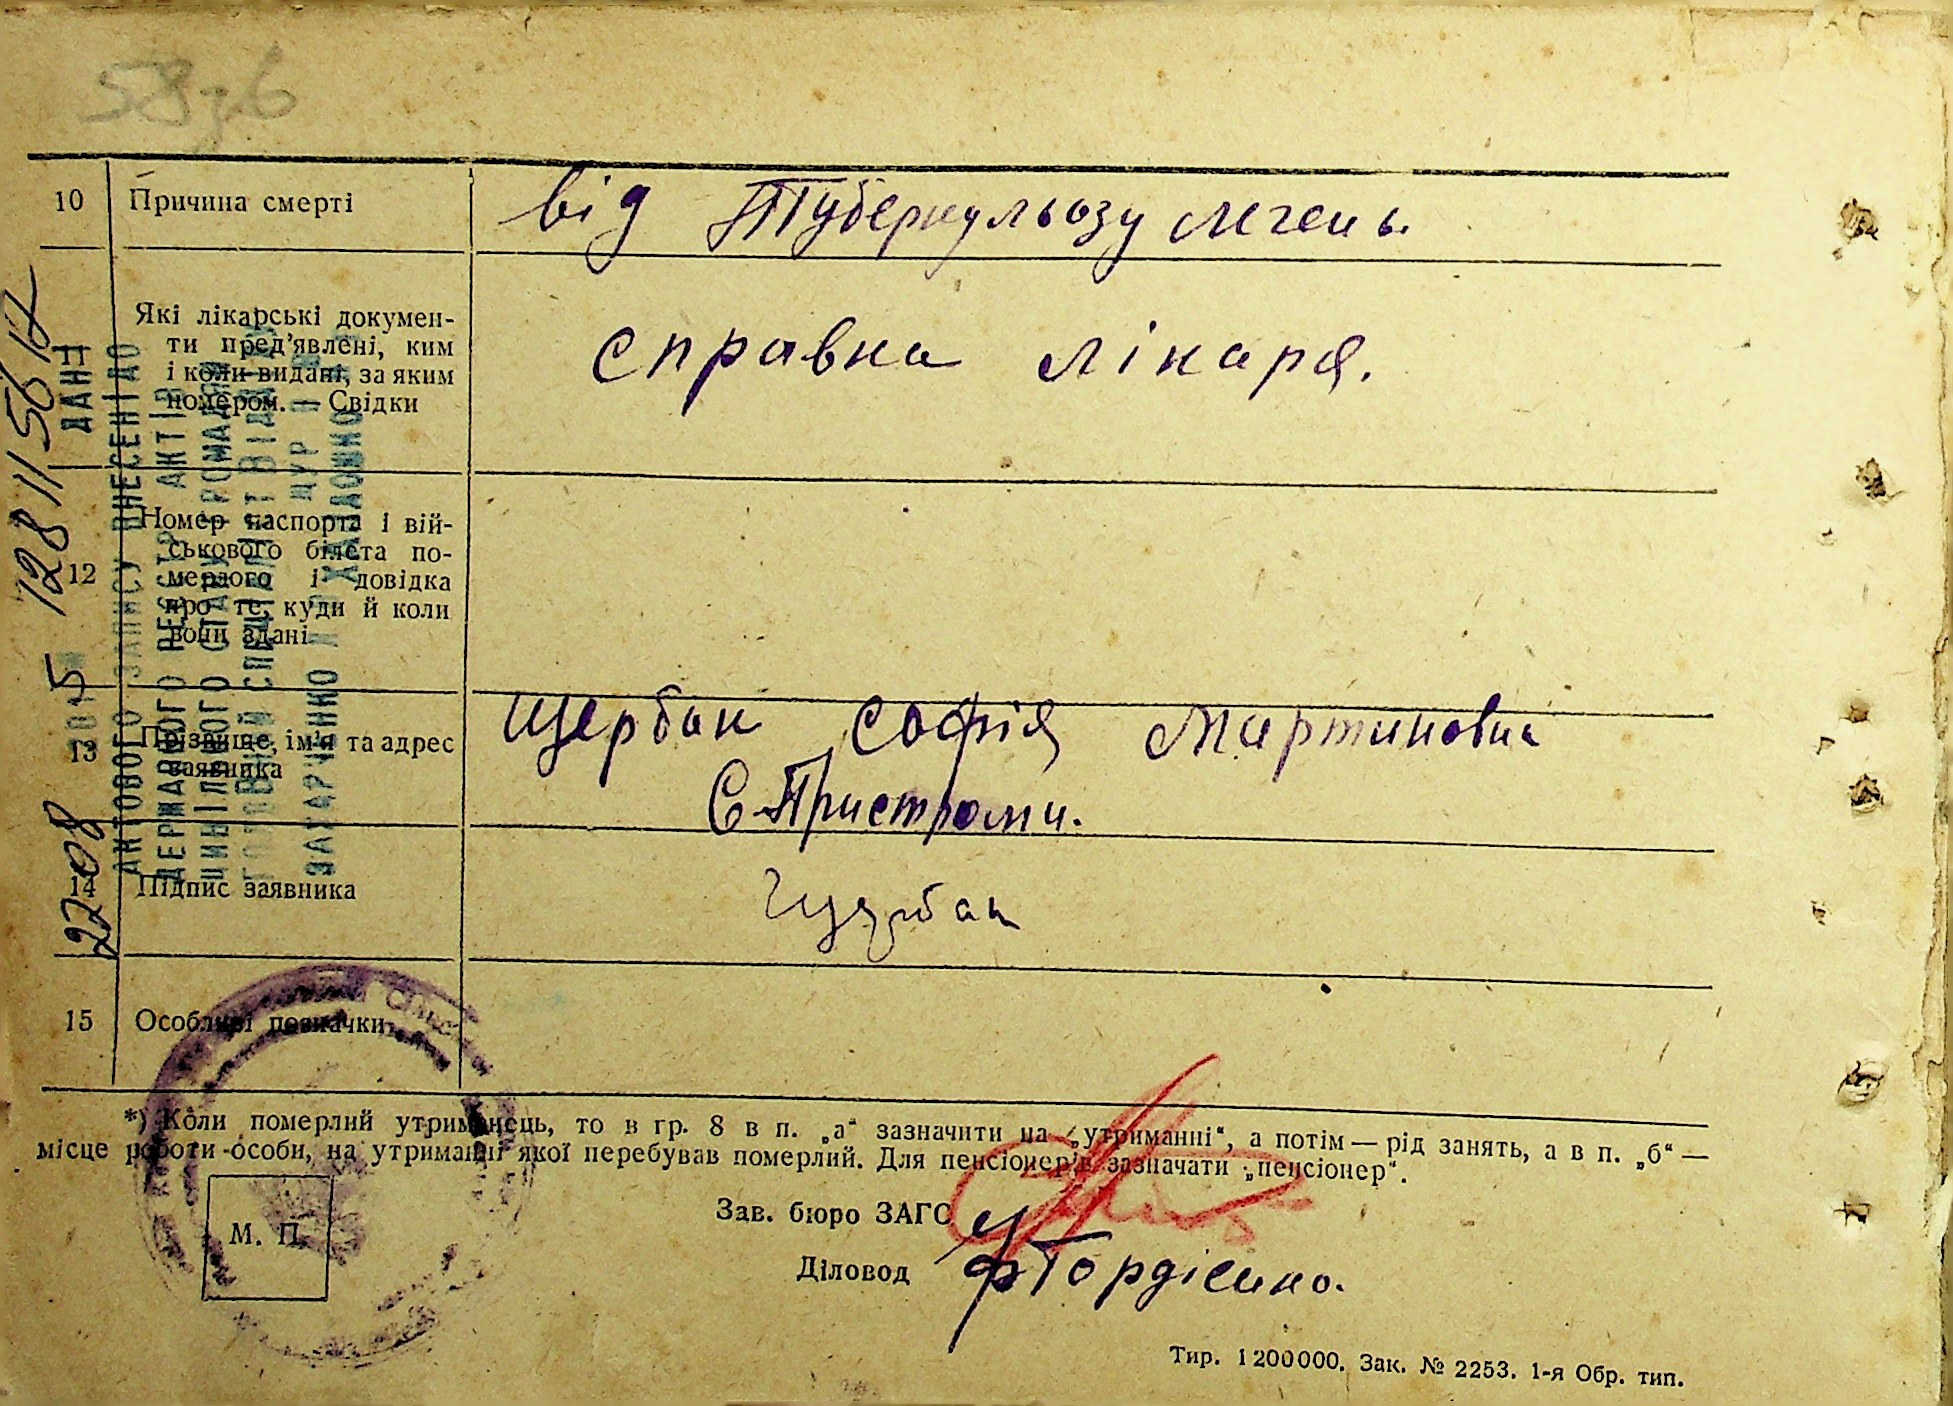 10 Причина смерті від Туберкульозу легень.
Які лікарські докумен-
ти пред'явлені, ким
і коли видані, за яким
номером. — Свідки
справка лікаря.
12 Номер паспорта і вій-
ськового білета по-
мерлого і довідка
про те, куди й коли
вони здані
13 Прізвище, ім'я та адрес
заявника
Щербак Софія Мартиновна
С. Пристроми.
14 Підпис заявника Щербак
15 Особливі позначки
*) Коли померлий утриманець, то в гр. 8 в п. „а“ зазначити на „утриманні“, а потім — рід занять, а в п. „б“ —
місце роботи особи, на утриманні якої перебував померлий. Для пенсіонерів зазначати „пенсіонер“.
М. П.
Зав. бюро ЗАГС
Діловод Гордієнко.
Тир. 1200000. Зак. № 2253. 1-я Обр. тип.
ДАНІ
АКТОВОГО ЗАПИСУ ВНЕСЕНІ ДО
ДЕРЖАВНОГО РЕЄСТРУ АКТІВ
ЦИВІЛЬНОГО СТАНУ ГРОМАДЯН
ГОЛОВНИЙ СПЕЦІАЛІСТ ВІДДІЛУ
22 08 5 12811561